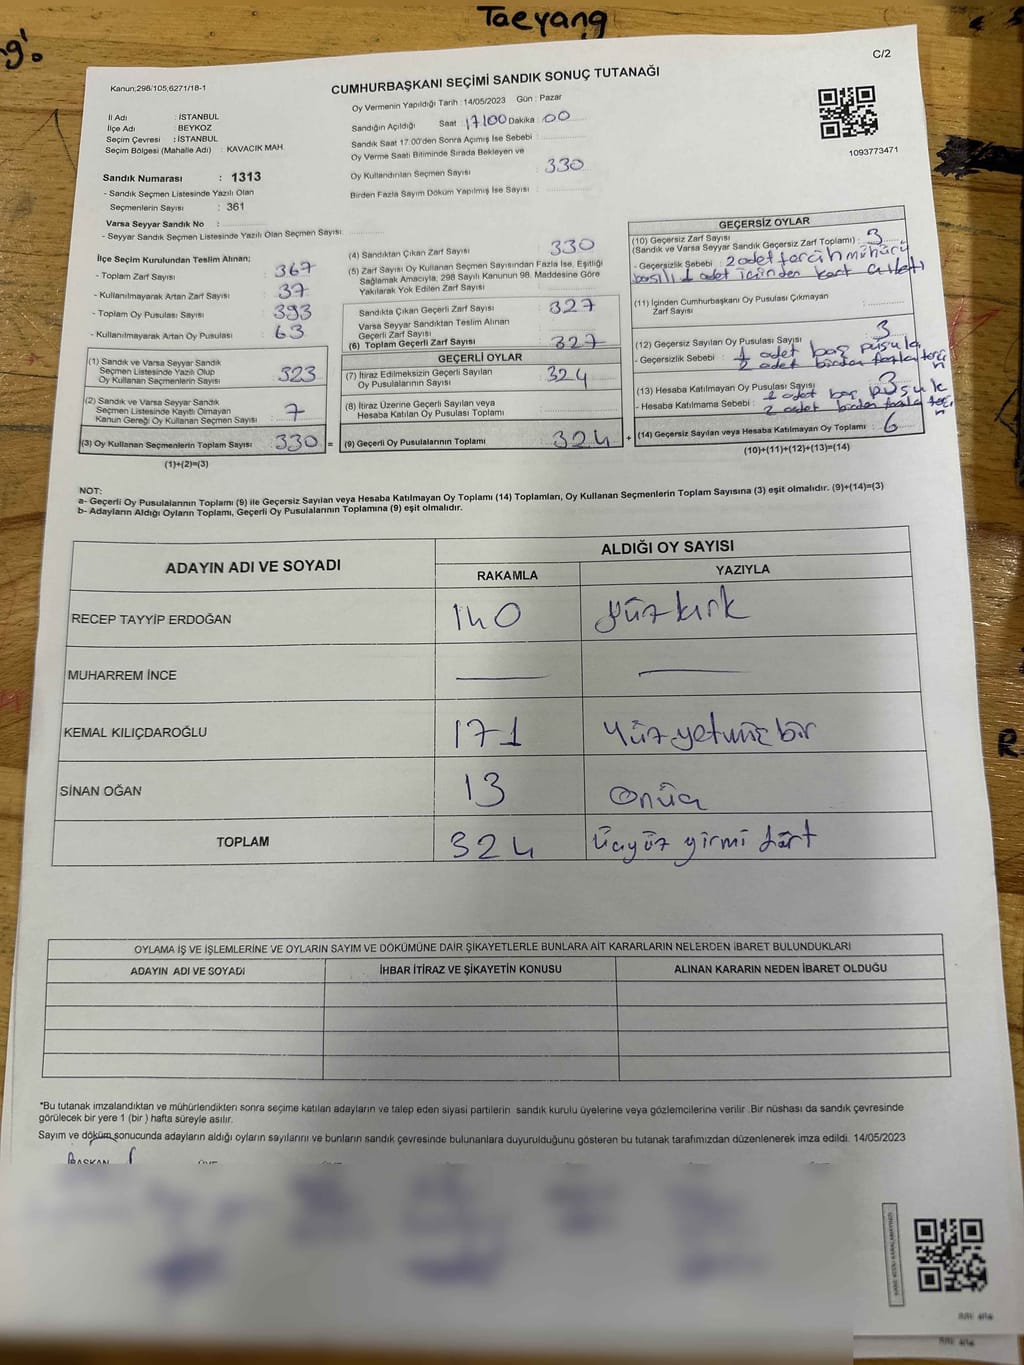 Taeyang
g'.
C/2
Kanun;298/105;6271/18-1
CUMHURBAŞKANI SEÇİMİ SANDIK SONUÇ TUTANAĞI
Oy Vermenin Yapıldığı Tarih : 14/05/2023 Gün : Pazar
İl Adı : İSTANBUL
İlçe Adı : BEYKOZ
Seçim Çevresi : İSTANBUL
Seçim Bölgesi (Mahalle Adı) : KAVACIK MAH.
Sandığın Açıldığı Saat 17:00 Dakika 00
Sandık Saat 17.00'den Sonra Açmış İse Sebebi :
Oy Verme Saati Bitiminde Sırada Bekleyen ve
Oy Kullandırılan Seçmen Sayısı : 330
Birden Fazla Sayım Döküm Yapılmış İse Sayısı :
1093773471
Sandık Numarası : 1313
- Sandık Seçmen Listesinde Yazılı Olan
Seçmenlerin Sayısı : 361
Varsa Seyyar Sandık No :
- Seyyar Sandık Seçmen Listesinde Yazılı Olan Seçmen Sayısı :
İlçe Seçim Kurulundan Teslim Alınan;
- Toplam Zarf Sayısı : 367
- Kullanılmayarak Artan Zarf Sayısı : 37
- Toplam Oy Pusulası Sayısı : 393
- Kullanılmayarak Artan Oy Pusulası : 63
(1) Sandık ve Varsa Seyyar Sandık
Seçmen Listesinde Yazılı Olup
Oy Kullanan Seçmenlerin Sayısı : 323
(2) Sandık ve Varsa Seyyar Sandık
Seçmen Listesinde Kayıtlı Olmayan
Kanun Gereği Oy Kullanan Seçmen Sayısı : 7
(3) Oy Kullanan Seçmenlerin Toplam Sayısı : 330 =
(1)+(2)=(3)
(4) Sandıktan Çıkan Zarf Sayısı : 330
(5) Zarf Sayısı Oy Kullanan Seçmen Sayısından Fazla İse, Eşitliği
Sağlamak Amacıyla; 298 Sayılı Kanunun 98. Maddesine Göre
Yakılarak Yok Edilen Zarf Sayısı :
Sandıkta Çıkan Geçerli Zarf Sayısı : 327
Varsa Seyyar Sandıktan Teslim Alınan
Geçerli Zarf Sayısı :
(6) Toplam Geçerli Zarf Sayısı : 327
GEÇERLİ OYLAR
(7) İtiraz Edilmeksizin Geçerli Sayılan
Oy Pusulalarının Sayısı : 324
(8) İtiraz Üzerine Geçerli Sayılan veya
Hesaba Katılan Oy Pusulası Toplamı :
(9) Geçerli Oy Pusulalarının Toplamı : 324 +
GEÇERSİZ OYLAR
(10) Geçersiz Zarf Sayısı
(Sandık ve Varsa Seyyar Sandık Geçersiz Zarf Toplamı) : 3
- Geçersizlik Sebebi : 2 adet tercih mührü
basılı 1 adet içinden kart çıktı
(11) İçinden Cumhurbaşkanı Oy Pusulası Çıkmayan
Zarf Sayısı :
(12) Geçersiz Sayılan Oy Pusulası Sayısı : 3
- Geçersizlik Sebebi : 1 adet boş pusula
2 adet birden fazla tercih
(13) Hesaba Katılmayan Oy Pusulası Sayısı :
- Hesaba Katılmama Sebebi : 1 adet boş pusula
2 adet birden fazla tercih
(14) Geçersiz Sayılan veya Hesaba Katılmayan Oy Toplamı : 6
(10)+(11)+(12)+(13)=(14)
NOT:
a- Geçerli Oy Pusulalarının Toplamı (9) ile Geçersiz Sayılan veya Hesaba Katılmayan Oy Toplamı (14) Toplamları, Oy Kullanan Seçmenlerin Toplam Sayısına (3) eşit olmalıdır. (9)+(14)=(3)
b- Adayların Aldığı Oyların Toplamı, Geçerli Oy Pusulalarının Toplamına (9) eşit olmalıdır.
ADAYIN ADI VE SOYADI
ALDIĞI OY SAYISI
RAKAMLA YAZIYLA
RECEP TAYYİP ERDOĞAN 140 yüzkırk
MUHARREM İNCE
KEMAL KILIÇDAROĞLU 171 Yüzyetmişbir
SİNAN OĞAN 13 Onüç
TOPLAM 324 Üçyüz yirmi dört
R.
OYLAMA İŞ VE İŞLEMLERİNE VE OYLARIN SAYIM VE DÖKÜMÜNE DAİR ŞİKAYETLERLE BUNLARA AİT KARARLARIN NELERDEN İBARET BULUNDUKLARI
ADAYIN ADI VE SOYADI İHBAR İTİRAZ VE ŞİKAYETİN KONUSU ALINAN KARARIN NEDEN İBARET OLDUĞU
*Bu tutanak imzalandıktan ve mühürlendikten sonra seçime katılan adayların ve talep eden siyasi partilerin sandık kurulu üyelerine veya gözlemcilerine verilir .Bir nüshası da sandık çevresinde
görülecek bir yere 1 (bir ) hafta süreyle asılır.
Sayım ve döküm sonucunda adayların aldığı oyların sayılarını ve bunların sandık çevresinde bulunanlara duyurulduğunu gösteren bu tutanak tarafımızdan düzenlenerek imza edildi. 14/05/2023
BAŞKAN